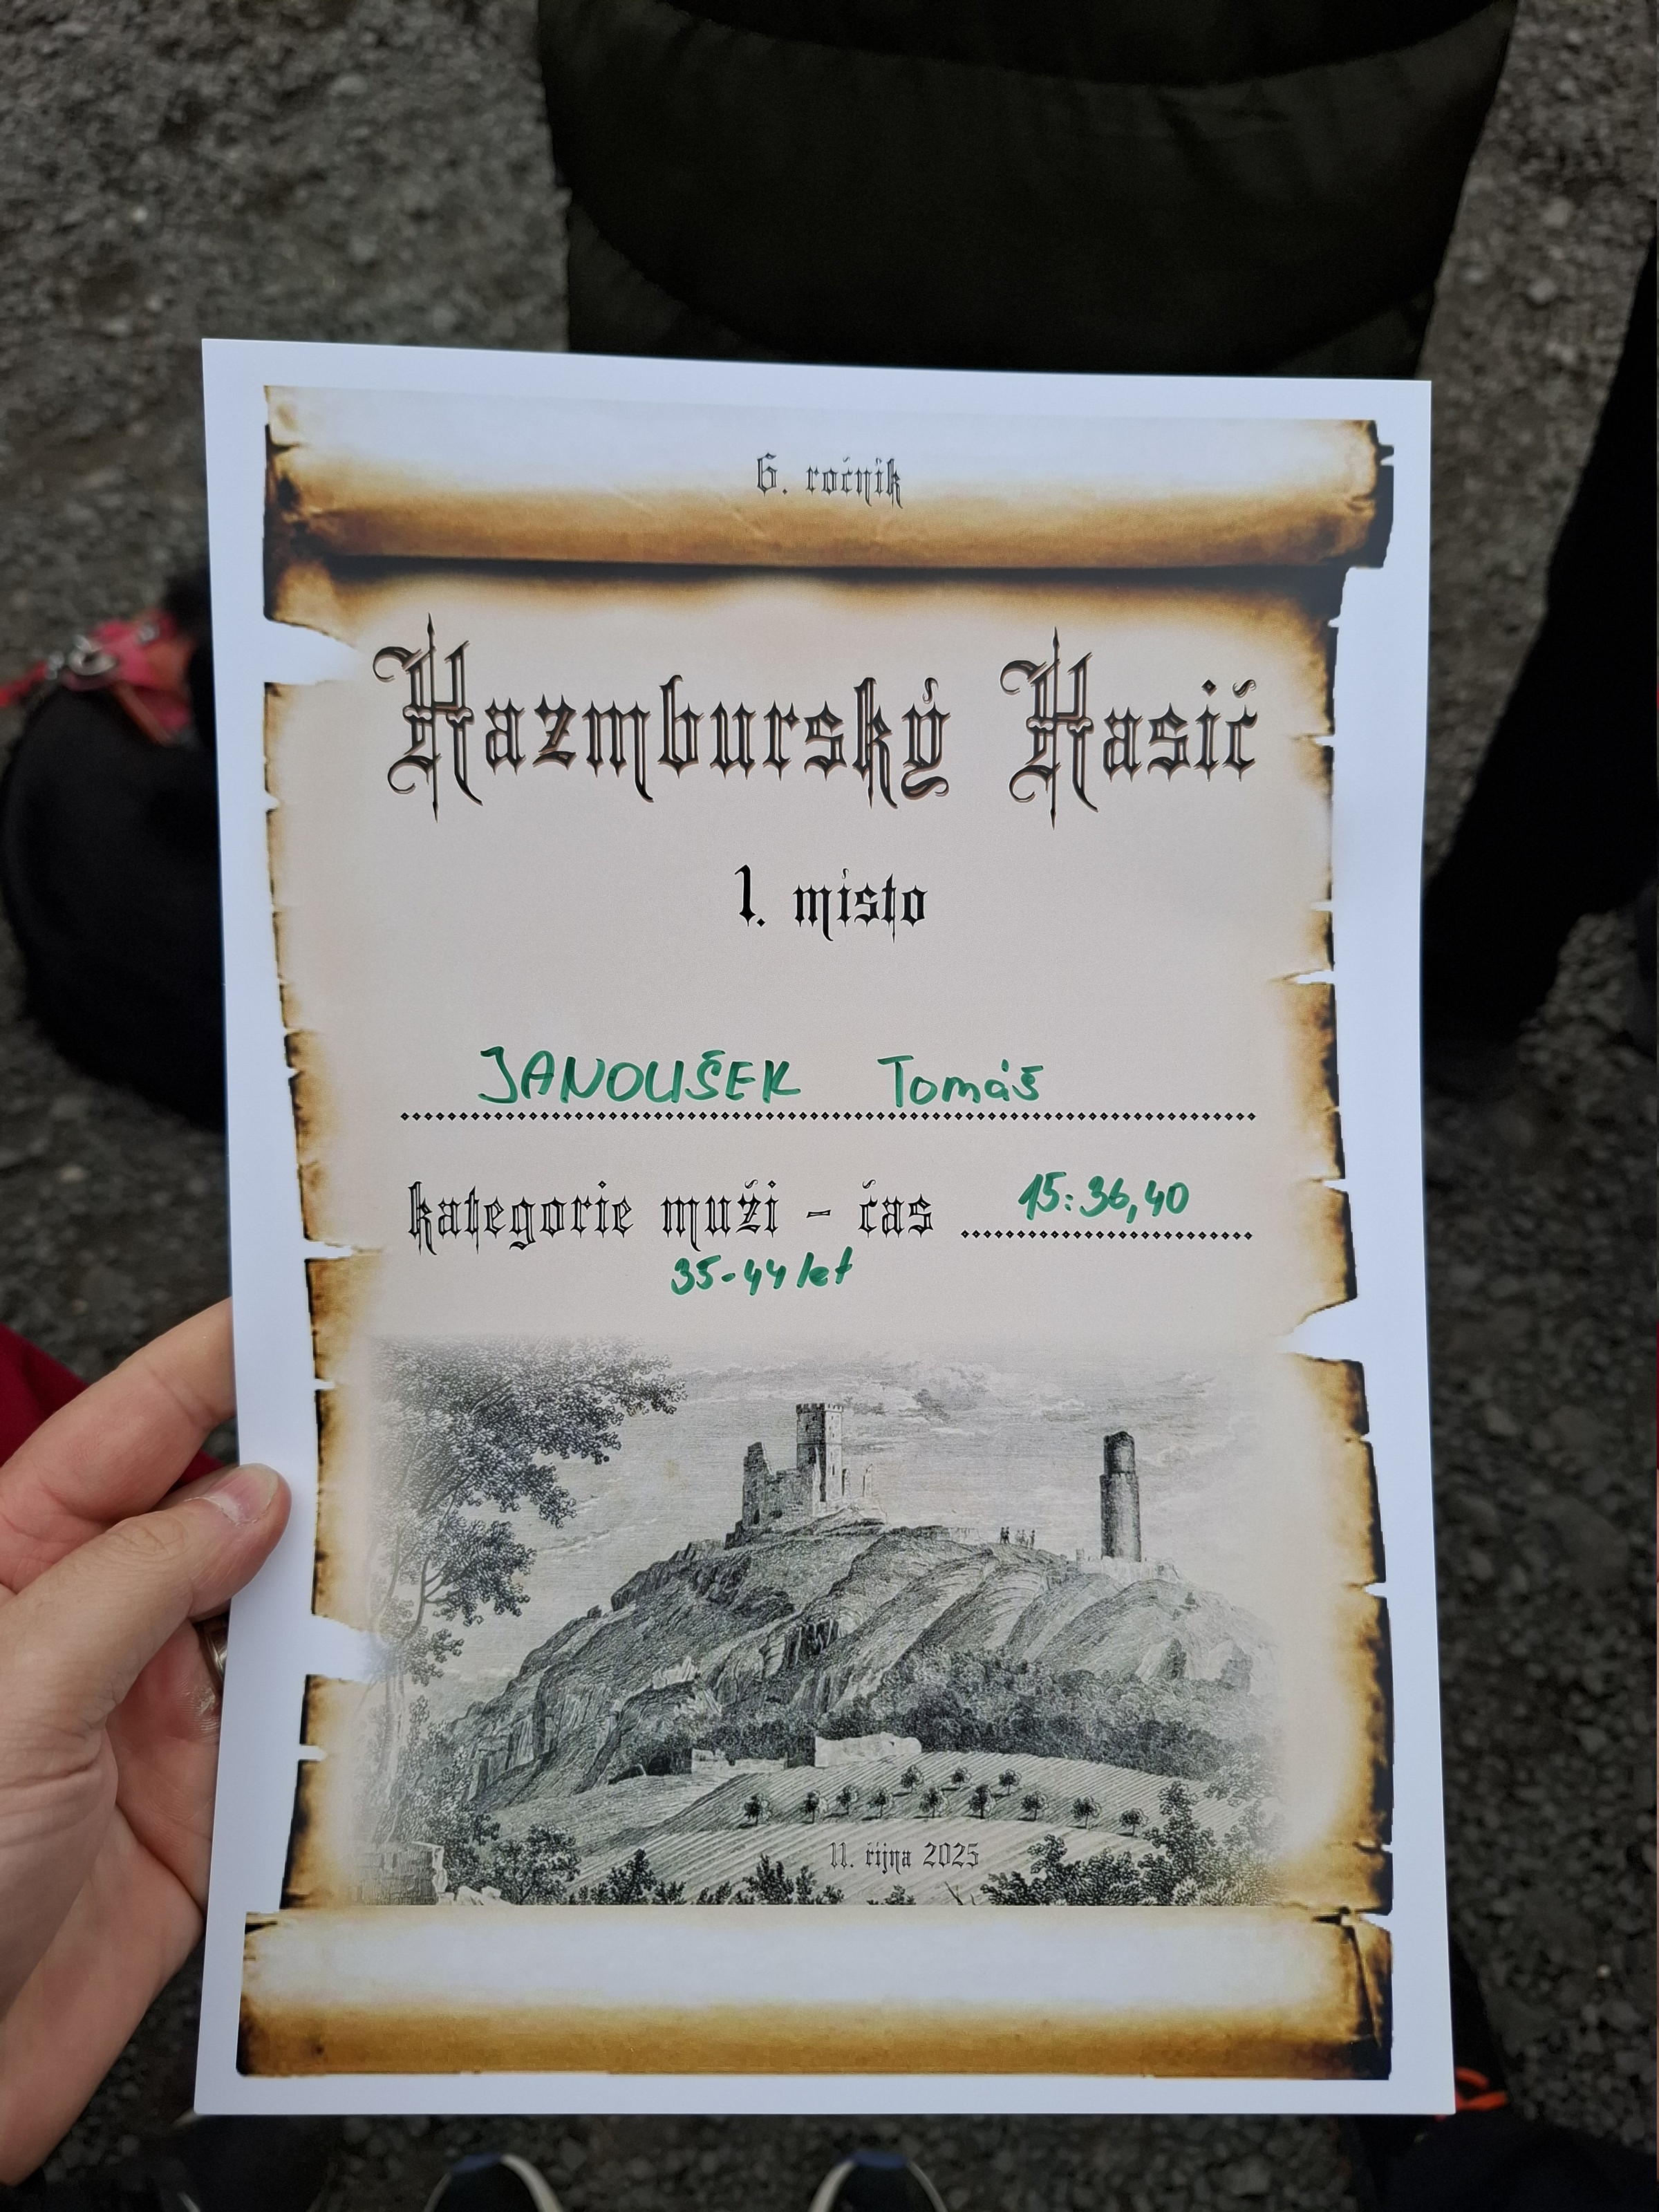 6. ročník
Hazmburský Hasič
1. místo
JANOUŠEK Tomáš
kategorie muži - čas 15:36,40
35-44 let
11. října 2025